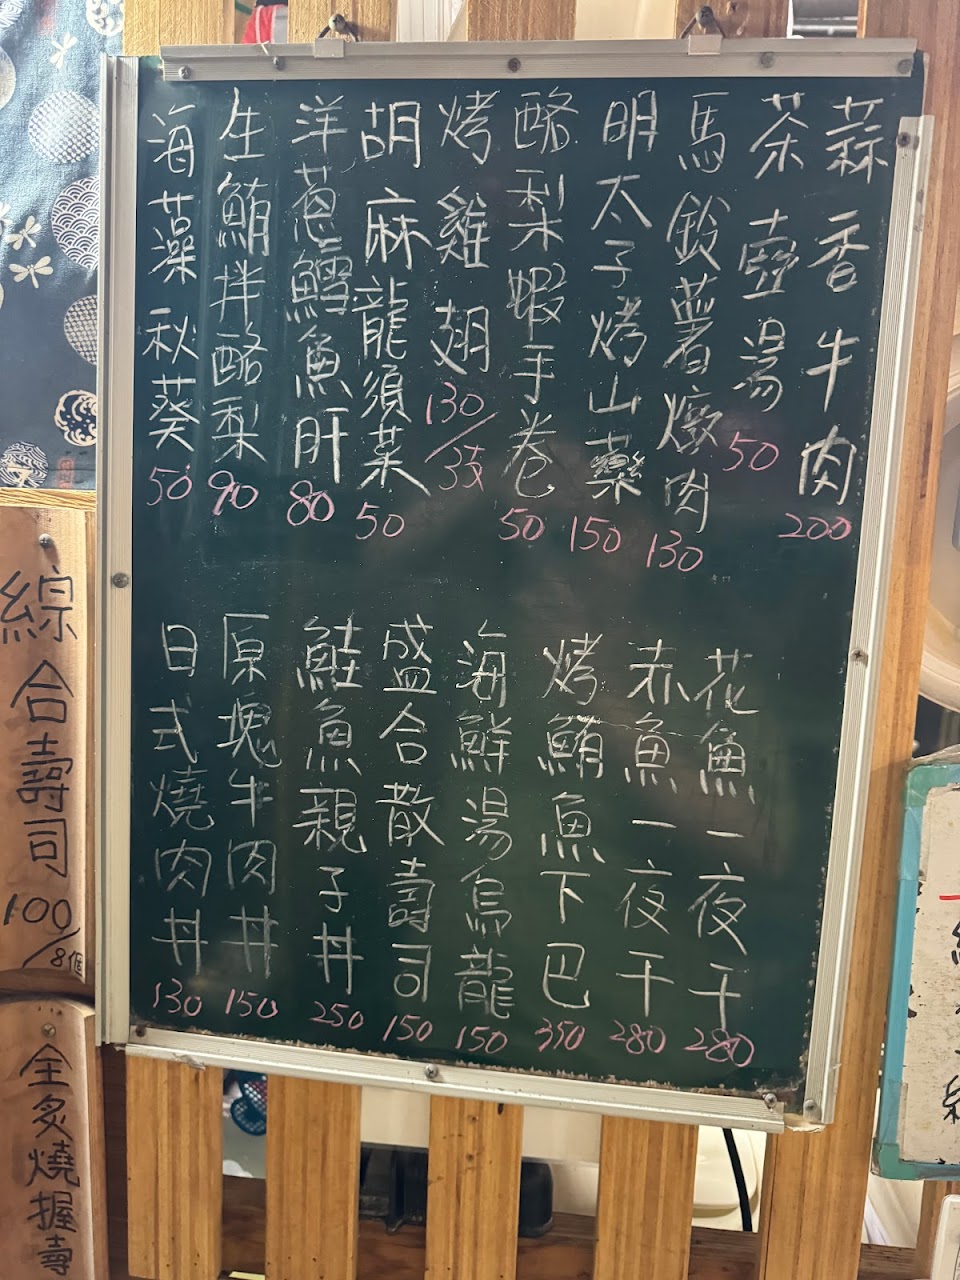 蒜香牛肉 200
茶壺湯 50
馬鈴薯燉肉 130
明太子烤山藥 150
酪梨蝦手卷 50
烤雞翅 130/3支
胡麻龍須菜 50
洋蔥鱈魚肝 80
生鮪拌酪梨 90
海藻秋葵 50
花魚一夜干 280
赤魚一夜干 280
烤鮪魚下巴 350
海鮮湯烏龍 150
盛合散壽司 150
鮭魚親子丼 250
原塊牛肉丼 150
日式燒肉丼 130
綜合壽司 100/8個
全炙燒握壽